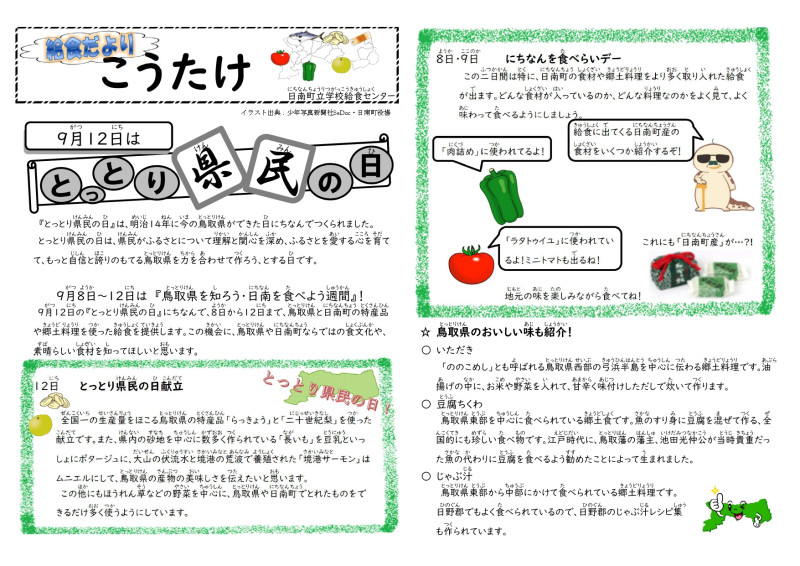 給食だより
こうたけ
日南町立学校給食センター
イラスト出典:少年写真新聞社SeDoc・日南町役場
9月12日は
とっとり県民の日
『とっとり県民の日』は、明治14年に今の鳥取県ができた日にちなんでつくられました。
とっとり県民の日は、県民がふるさとについて理解と関心を深め、ふるさとを愛する心を育て
て、もっと自信と誇りのもてる鳥取県を力を合わせて作ろう、とする日です。
9月8日~12日は『鳥取県を知ろう・日南を食べよう週間』!
9月12日の『とっとり県民の日』にちなんで、8日から12日まで、鳥取県と日南町の特産品
や郷土料理を使った給食を提供します。この機会に、鳥取県や日南町ならではの食文化や、
素晴らしい食材を知ってほしいと思います。
12日 とっとり県民の日献立
とっとり県民の日!
全国一の生産量をほこる鳥取県の特産品「らっきょう」と「二十世紀梨」を使った
献立です。また、県内の砂地を中心に数多く作られている「長いも」を豆乳といっ
しょにポタージュに、大山の伏流水と境港の荒波で養殖された「境港サーモン」は
ムニエルにして、鳥取県の産物の美味しさを伝えたいと思います。
この他にもほうれん草などの野菜を中心に、鳥取県や日南町でとれたものをで
きるだけ多く使うようにしています。
8日・9日 にちなんを食べらいデー
この二日間は特に、日南町の食材や郷土料理をより多く取り入れた給食
が出ます。どんな食材が入っているのか、どんな料理なのかをよく見て、よく
味わって食べるようにしましょう。
給食に出てくる日南町産の
食材をいくつか紹介するぞ!
「肉詰め」に使われてるよ!
「ラタトゥイユ」に使われてい
るよ!ミニトマトも出るね!
これにも「日南町産」が…?!
地元の味を楽しみながら食べてね!
☆ 鳥取県のおいしい味も紹介!
○ いただき
「ののこめし」とも呼ばれる鳥取県西部の弓浜半島を中心に伝わる郷土料理です。油
揚げの中に、お米や野菜を入れて、甘辛く味付けしただしで炊いて作ります。
○ 豆腐ちくわ
鳥取県東部を中心に食べられている郷土食です。魚のすり身に豆腐を混ぜて作る、全
国的にも珍しい食べ物です。江戸時代に、鳥取藩の藩主、池田光仲公が当時貴重だっ
た魚の代わりに豆腐を食べるよう勧めたことによって生まれました。
○ じゃぶ汁
鳥取県東部から中部にかけて食べられている郷土料理です。
日野郡でもよく食べられているので、日野郡のじゃぶ汁レシピ集
も作られています。